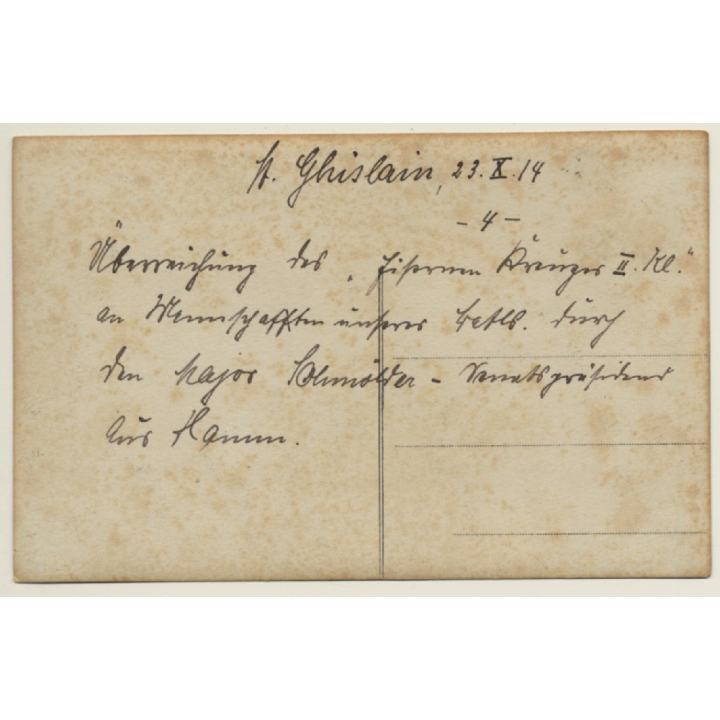 St. Ghislain, 23. X. 14
- 4 -
Überreichung des „Eisernen Kreuzes II. Kl."
an Mannschaften unseres Batls. durch
den Major Schmölder - Senatspräsident
aus Hamm.